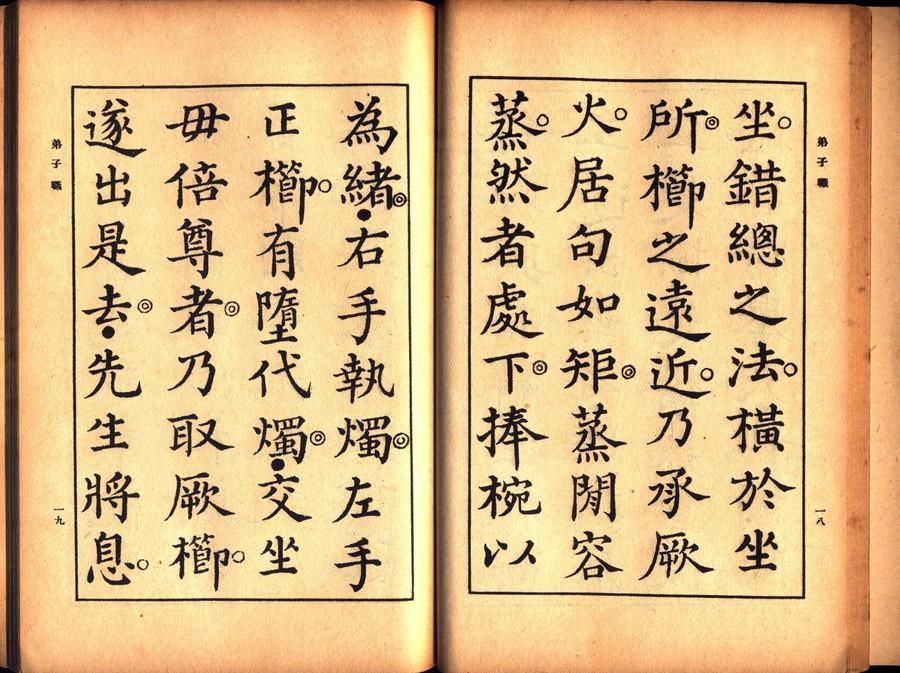 弟子職
坐錯總之法橫於坐
所櫛之遠近乃承厥
火居句如矩蒸閒容
蒸然者處下捧椀以
一八
為緒右手執燭左手
正櫛有墮代燭交坐
毋倍尊者乃取厥櫛
遂出是去先生將息
弟子職
一九